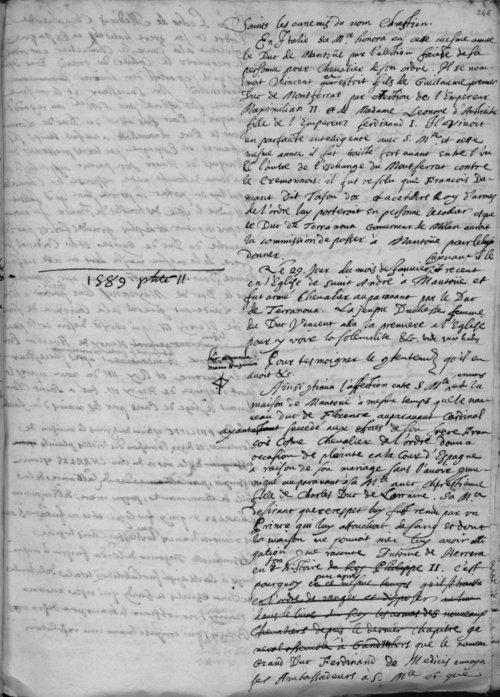 246
Saints les ennemis du nom Chrestien.
En Italie sa M.té honora en cette mesme année
le Duc de Mantoüe par l'election faicte de sa
personne pour Chevalier de son ordre. Il se nom-
moit Vincent estoit fils de Guillaume premier
Duc de Montferrat par erection de l'Empereur
Maximilian II. et de Madame Leonore d'Austriche
fille de l'Empereur Ferdinand I. Il vivoit
en parfaicte intelligence avec S. M.té et cette
mesme annee il fut traicté fort avant entre l'un
et l'autre de l'eschange du Montferrat contre
le Cremonnois: il fut resolu que François Da-
mant dit Toison d'or et Roy d'armes
de l'ordre luy porteront en personne le collier et que
le Duc de Terranova Gouverneur de Milan auroit
la commission de passer à Mantoüe pour le luy
donner. le
Le 29. Jour du mois de Janvier il recent
1589
en l'Eglise de saint André à Mantoüe et
fut armé Chevalier auparavant par le Duc
de Terranova. La jeune Duchesse femme
du Duc Vincent alla la premiere à l'Eglise
pour y voire la solemnité &c
Pour tesmoigner le qu'il en
avoit &c
Ainsi l'affection entre S. M.té et la
maison de Mantoüe à mesme temps que le nou-
veau duc de Florence auparavant Cardinal
ayant succedé aux estats de son frere Fran-
çois Cosme Chevalier de l'ordre donna
occasion de plainte en la Cour d'Espagne
à raison de son mariage sans l'avoir
nique auparavant à sa M.té avec Chrestienne
fille de Charles Duc de Lorraine. Sa M.té
desirant que ce respet luy fut rendu par un
Prince qui luy attouchoit de sang et dont
la maison ne pouvoit nier luy avoir obli-
gation que raconte Antoine de Herrera
en l'Histoire du Roy Philippe II. c'est
pourquoy en ce mesme temps
en l'ordre de
dans le livre du Roy les armes des nouveaux
Chevaliers depuis le dernier chapitre ge-
neral que le nouveau
Grand Duc Ferdinand de Medicis envoya
ses Ambassadeurs à S. M.té et que